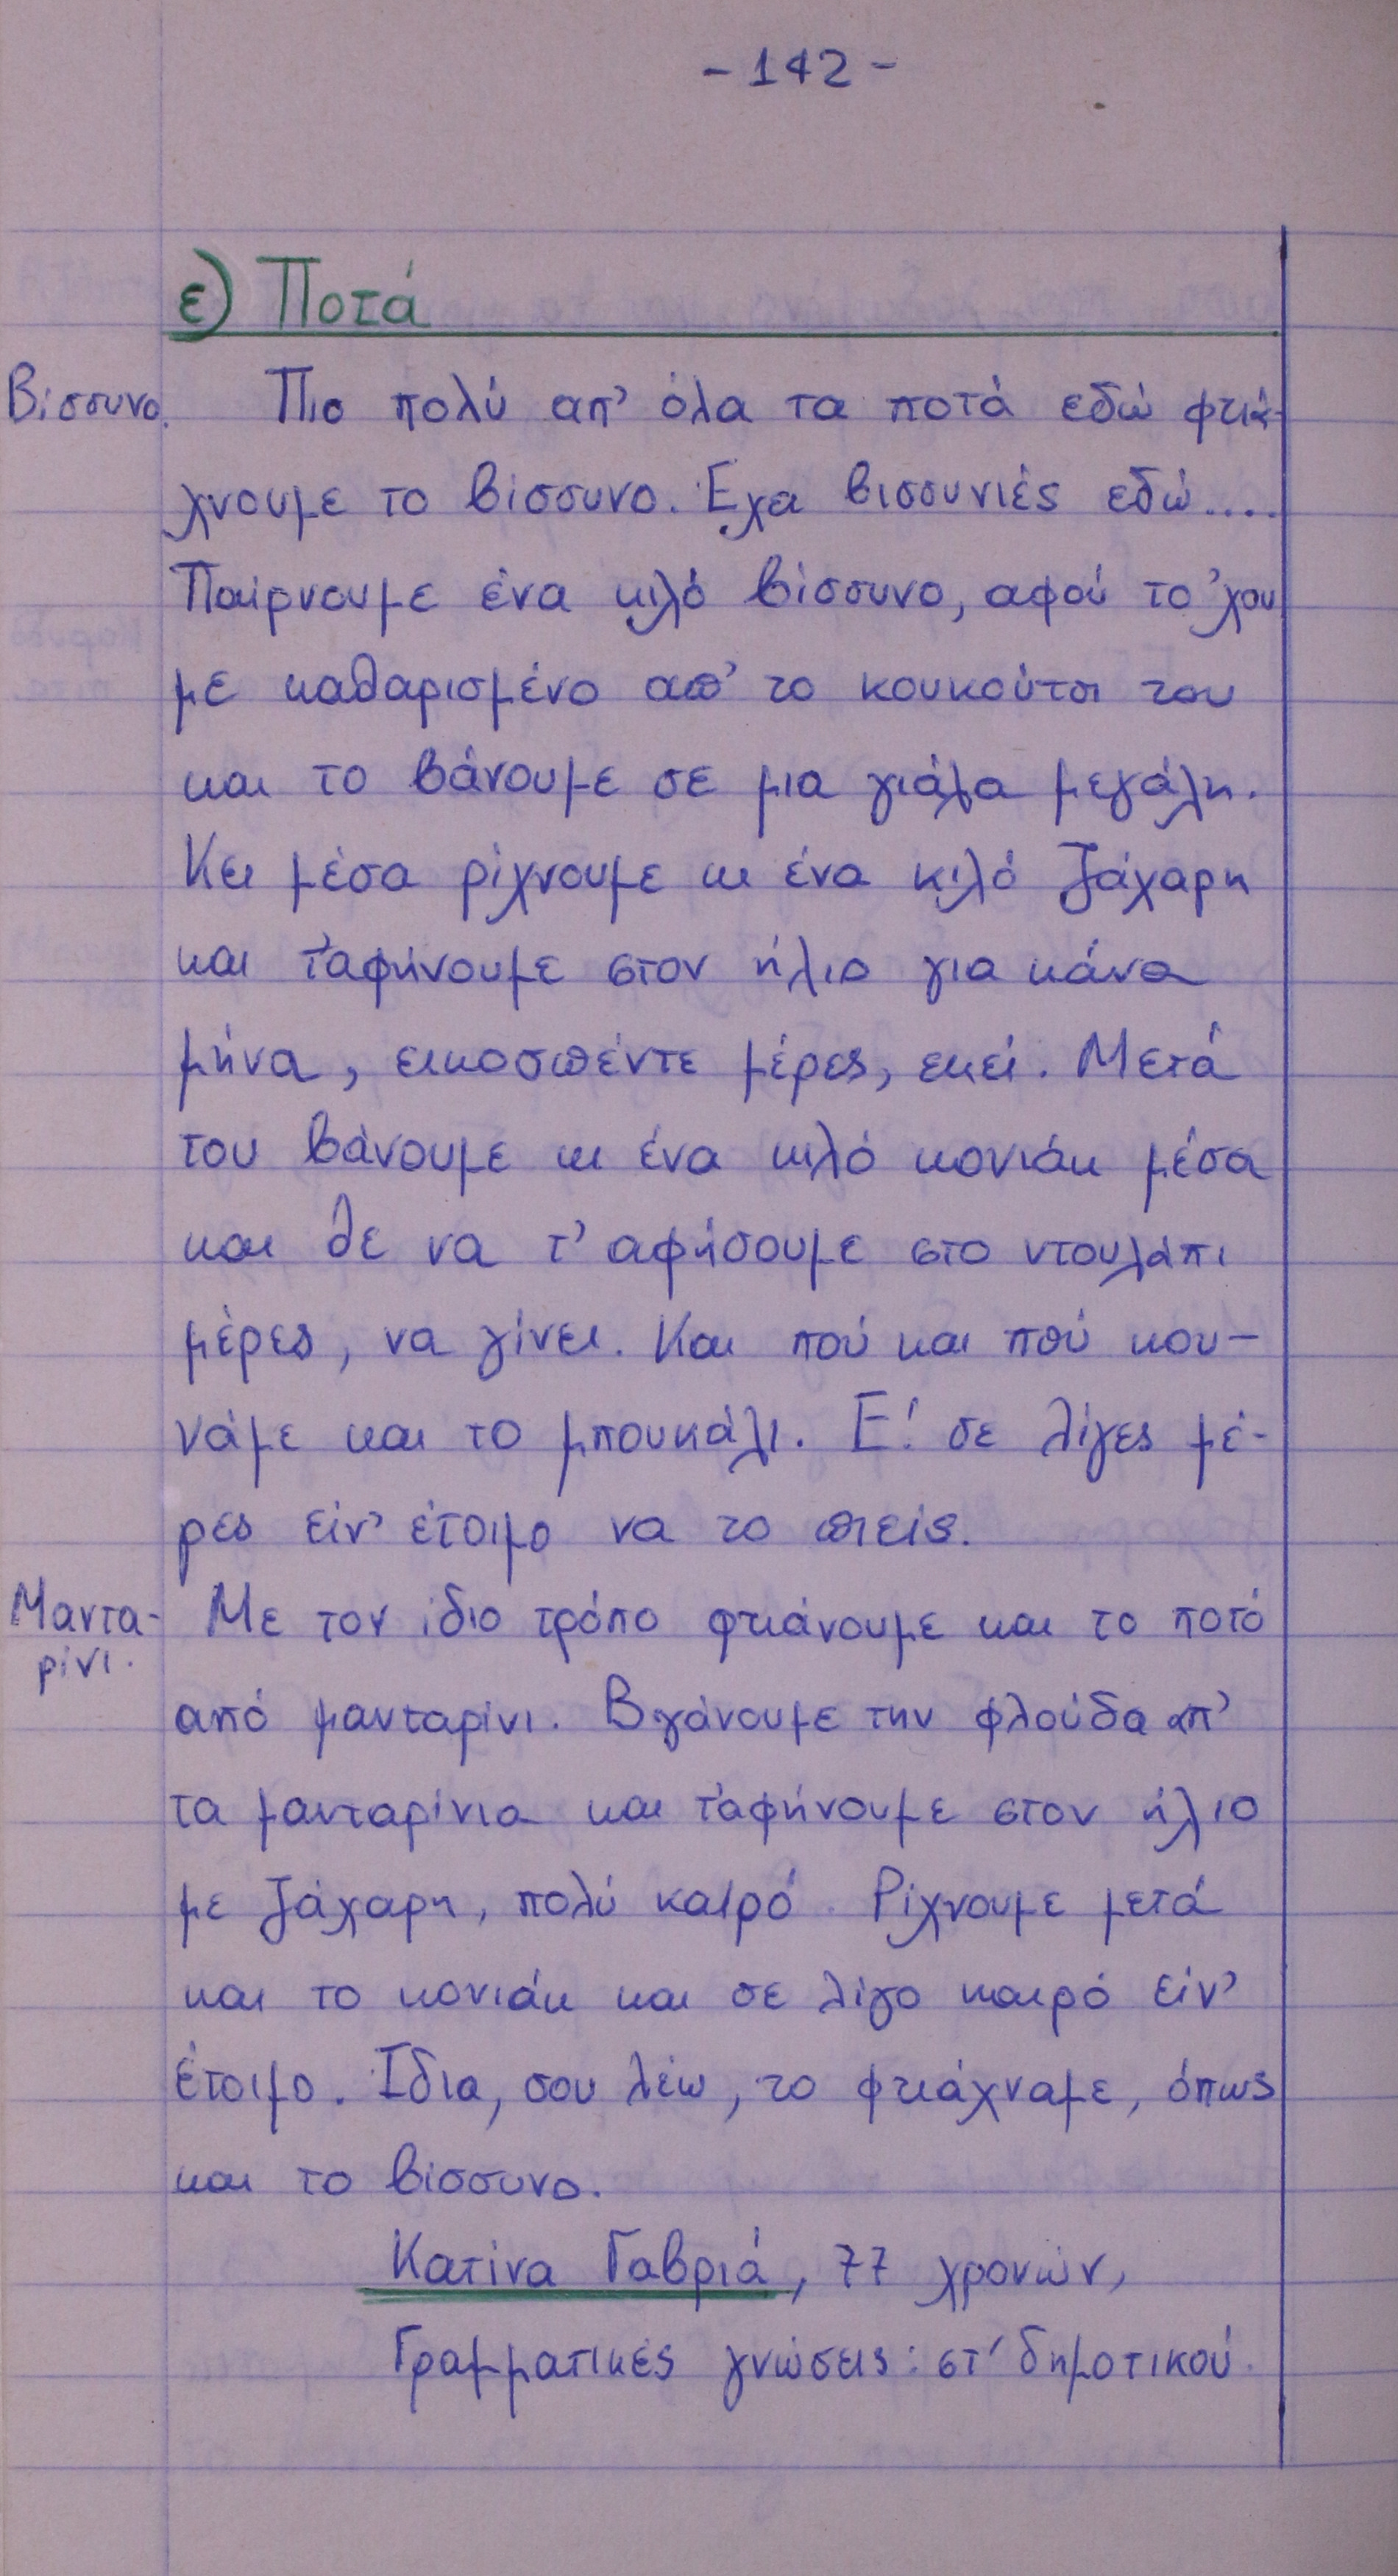 -142-
ε) Ποτά
Βίσσυνο. Πιο πολύ απ' όλα τα ποτά εδώ φτιά-
χνουμε το βίσσυνο. Έχει βισσυνιές εδώ....
Παίρνουμε ένα κιλό βίσσυνο, αφού το 'χου
με καθαρισμένο απ' το κουκούτσι του
και το βάνουμε σε μια γιάλα μεγάλη.
Κει μέσα ρίχνουμε κι ένα κιλό ζάχαρη
και τ'αφήνουμε στον ήλιο για κάνα
μήνα, εικοσιπέντε μέρες, εκεί. Μετά
του βάνουμε κι ένα κιλό κονιάκ μέσα
και θε να τ' αφήσουμε στο ντουλάπι
μέρες, να γίνει. Και πού και πού κου-
νάμε και το μπουκάλι. Ε! σε λίγες μέ-
ρες είν' έτοιμο να το πιείς.
Μαντα- Με τον ίδιο τρόπο φτιάνουμε και το ποτό
ρίνι.
από μανταρίνι. Βγάνουμε την φλούδα απ'
τα μανταρίνια και τ'αφήνουμε στον ήλιο
με ζάχαρη, πολύ καιρό. Ρίχνουμε μετά
και το κονιάκ και σε λίγο καιρό είν'
έτοιμο. Ίδια, σου λέω, το φτιάχναμε, όπως
και το βίσσυνο.
Κατίνα Γαβριά, 77 χρονών,
Γραμματικές γνώσεις: στ' δημοτικού.